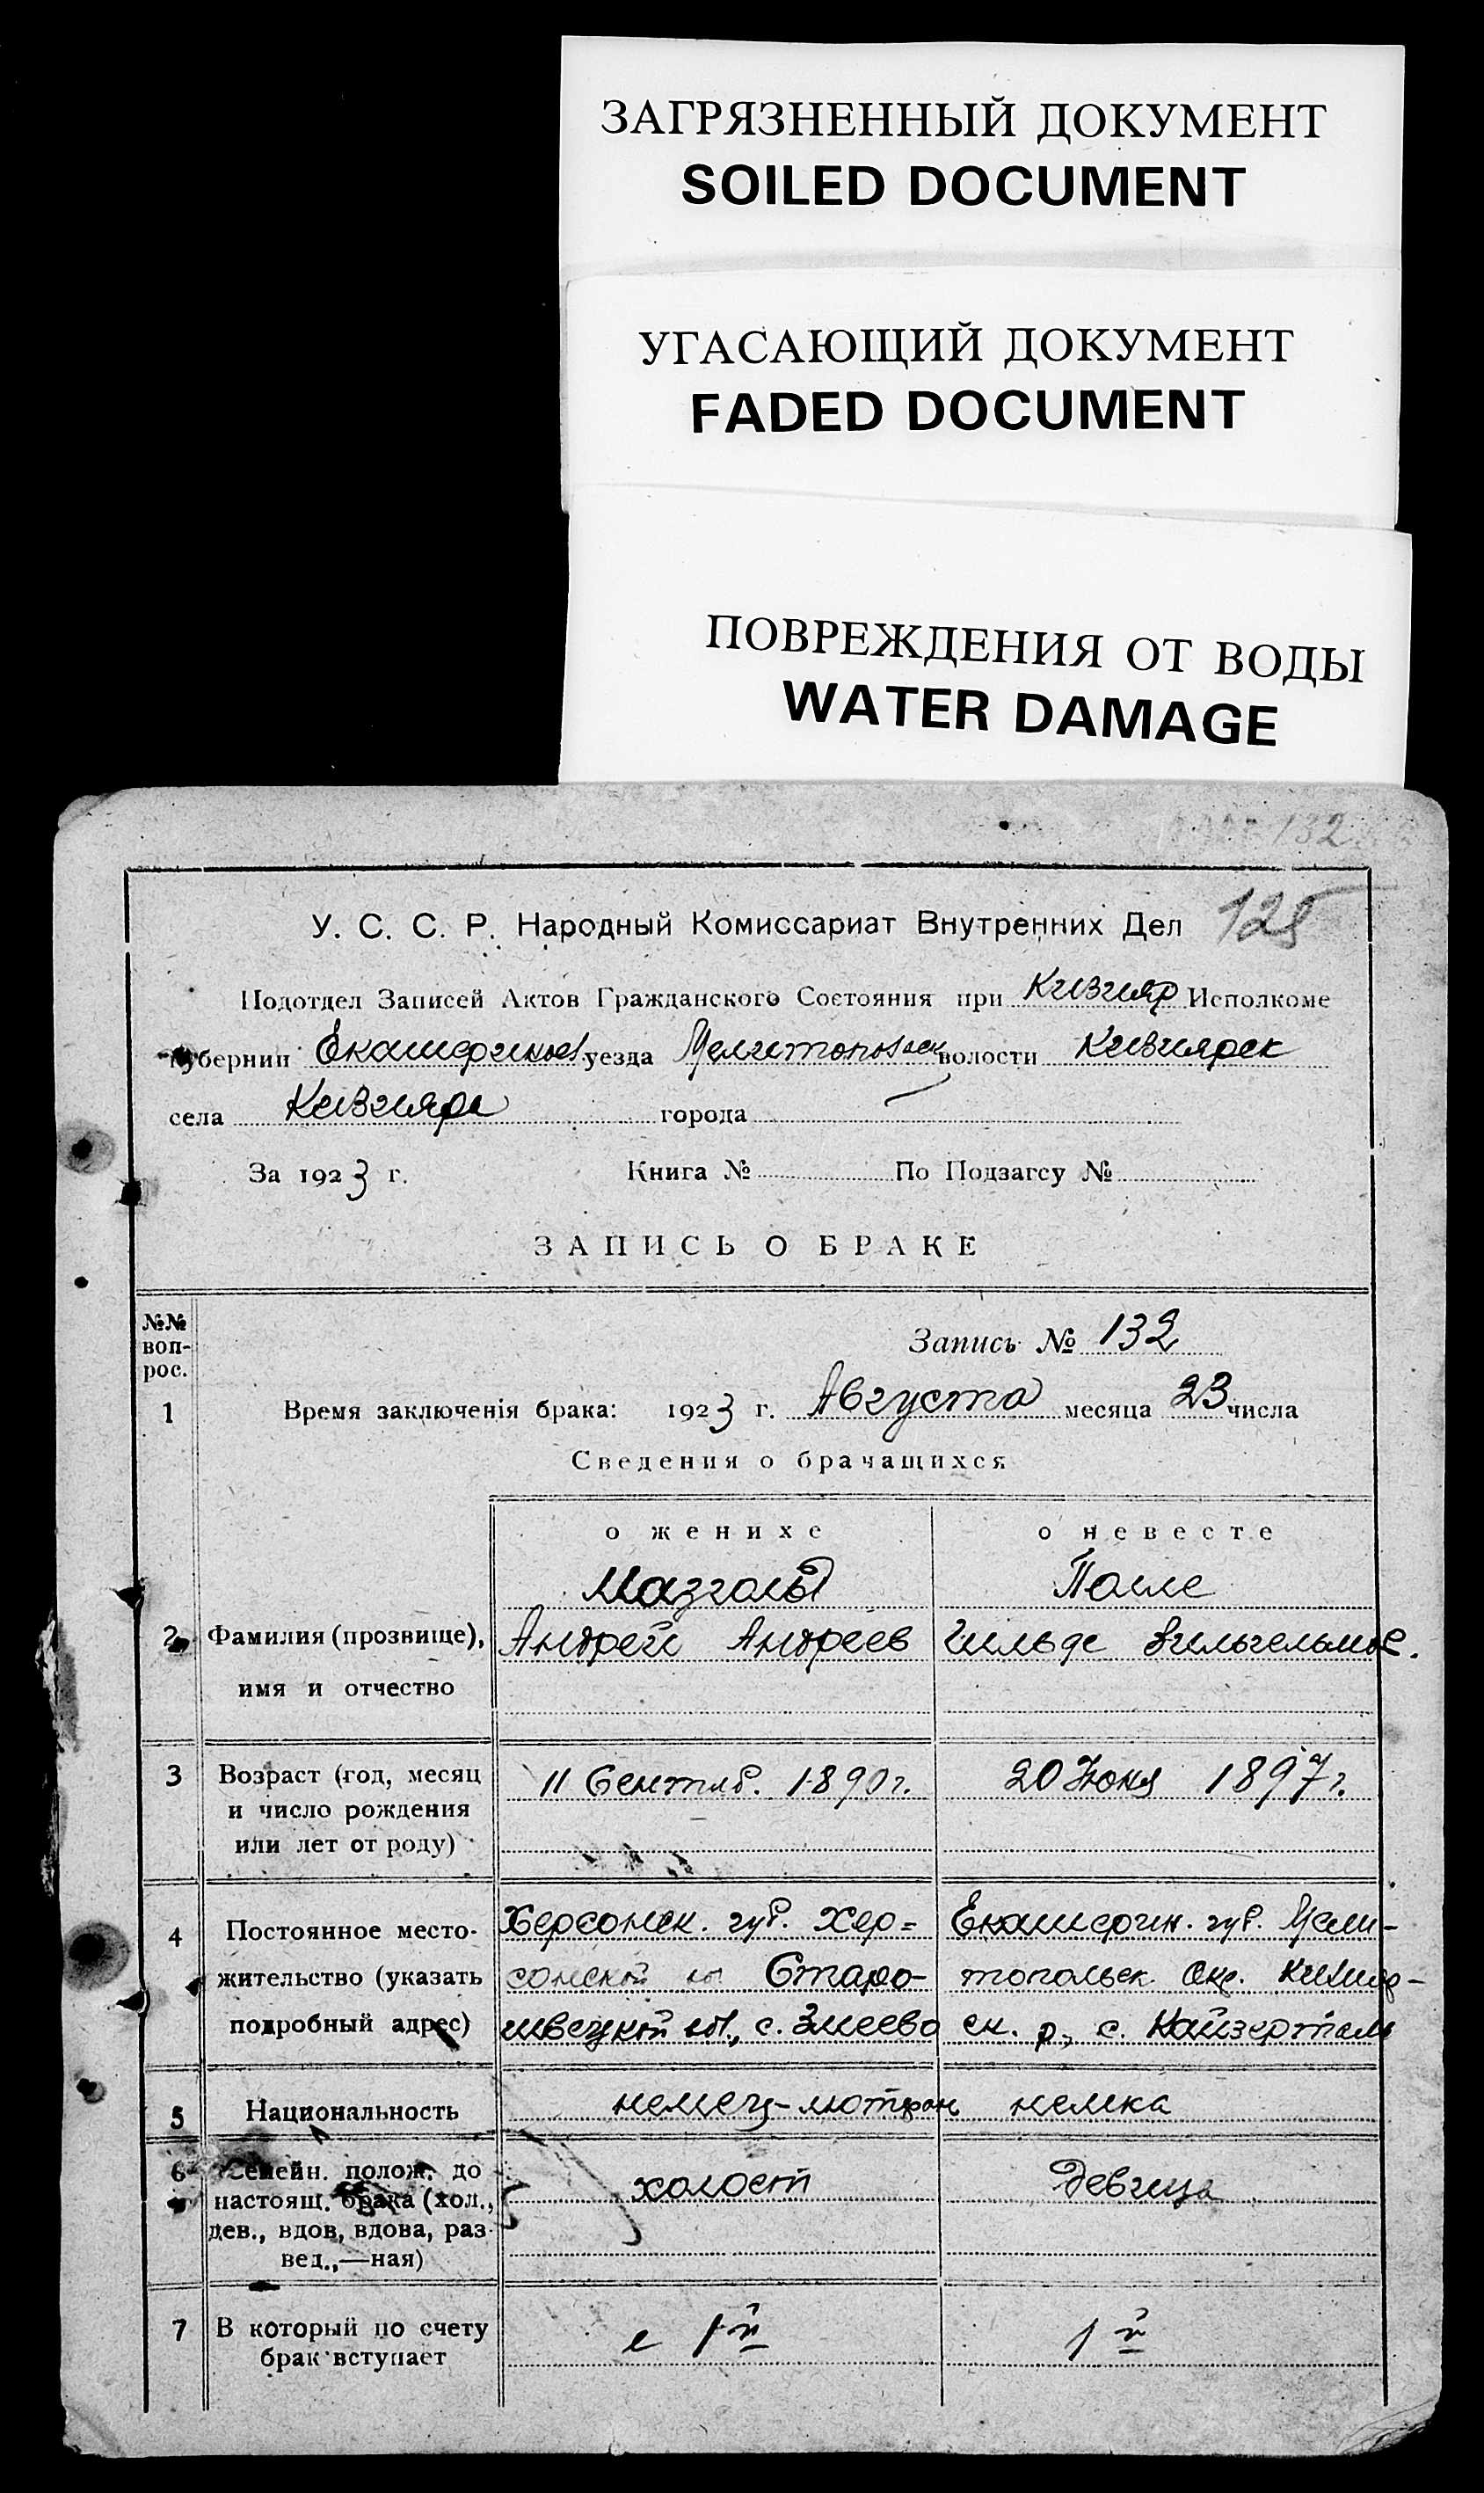 ЗАГРЯЗНЕННЫЙ ДОКУМЕНТ
SOILED DOCUMENT
УГАСАЮЩИЙ ДОКУМЕНТ
FADED DOCUMENT
ПОВРЕЖДЕНИЯ ОТ ВОДЫ
WATER DAMAGE
132
У. С. С. Р. Народный Комиссариат Внутренних Дел 125
Подотдел Записей Актов Гражданского Состояния при Кизияр Исполкоме
губернии Екатеринос. уезда Мелитопольск волости Кизиярск
села Кизияра города
За 1923 г. Книга № По Подзагсу №
ЗАПИСЬ О БРАКЕ
№№ воп-
рос.
Запись № 132
1 Время заключенія брака: 1923 г. Августа месяца 23 числа
Сведения о брачащихся
о женихе о невесте
2 Фамилия (прозвище),
имя и отчество
Андрей Андреев
Гильде Вильгельмов.
3 Возраст (год, месяц
и число рождения
или лет от роду)
11 Сентяб. 1890 г.
20 Июня 1897 г.
4 Постоянное место-
жительство (указать
подробный адрес)
Херсонск. губ. Хер=
сонской Старо-
шведской вол., с. Змеево
Екатерин. губ. Мели-
топольск. Окр. Кизияр-
ск. р., с. Кайзерталь
5 Национальность
немец-лютеран
немка
6 Семейн. полож. до
настоящ. брака (хол.,
дев., вдов, вдова, раз-
вед.,—ная)
холост
девица
7 В который по счету
брак вступает
1й
1й